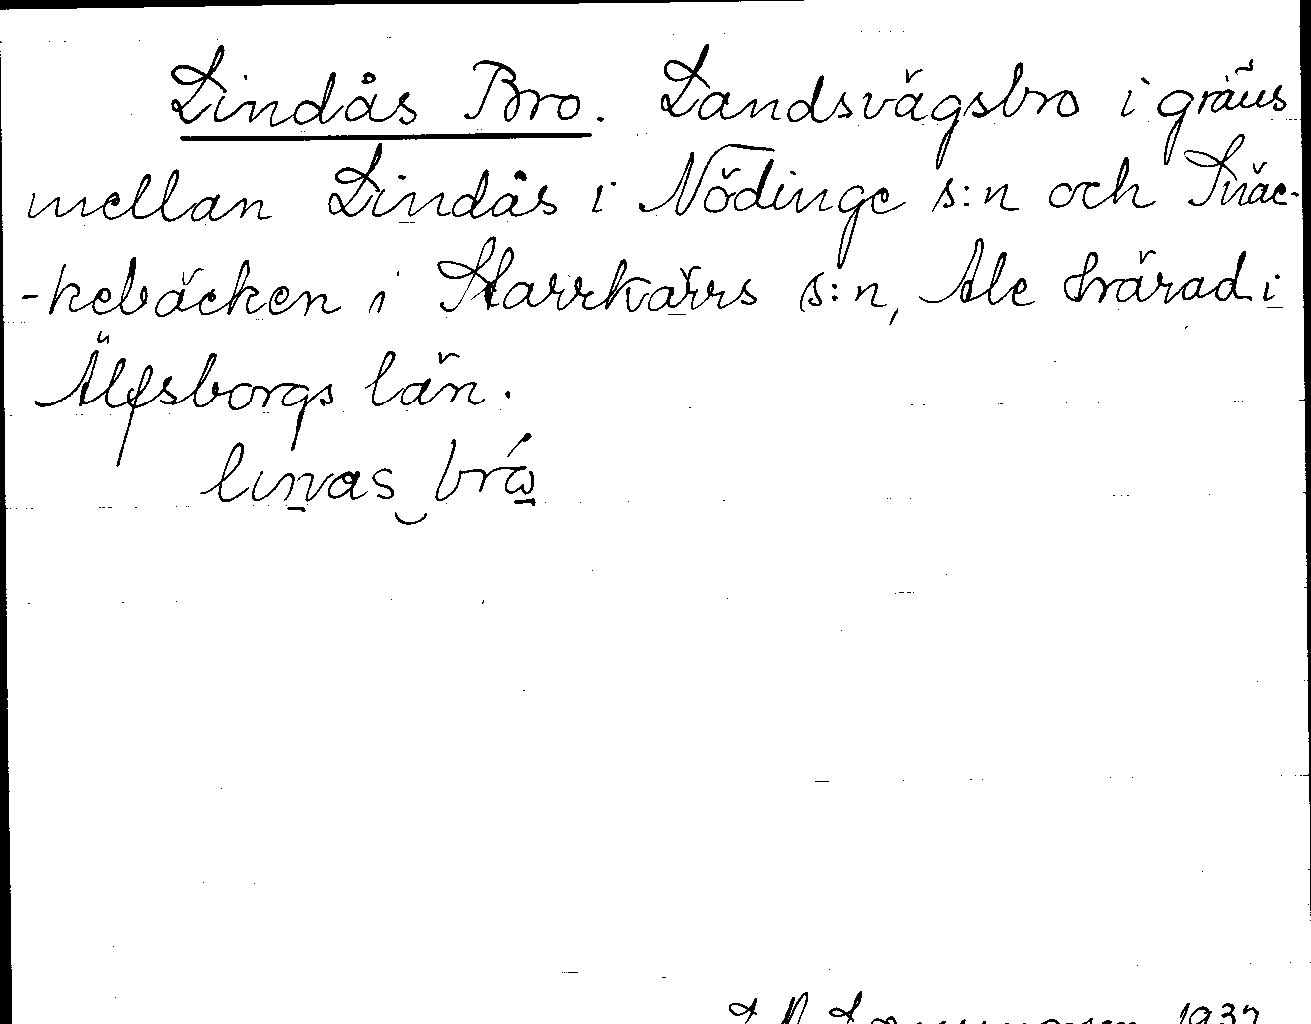 Lindås Bro. Landsvägsbro i gräns
mellan Lindås i Nödinge s:n och Snäc-
-kebäcken i Starrkärrs s:n, Ale härad i
Älfsborgs län.
linas brω
1937